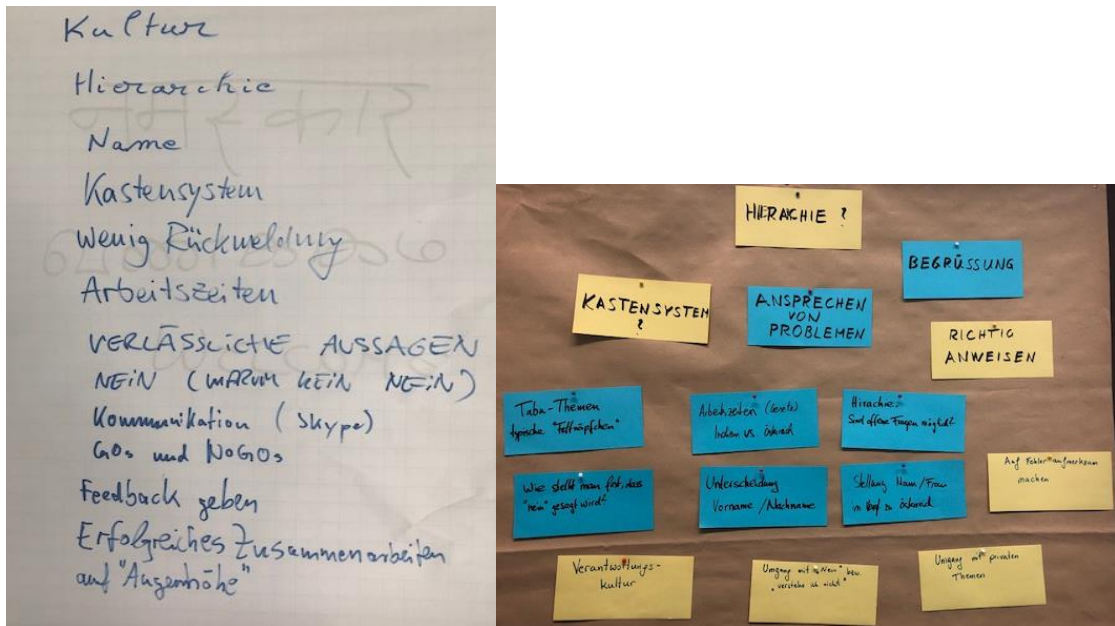 Kultur
Hierarchie
Name
Kastensystem
Wenig Rückmeldung
Arbeitszeiten
VERLÄSSLICHE AUSSAGEN
NEIN (WARUM KEIN NEIN)
Kommunikation (Skype)
GOs und NoGOs
Feedback geben
Erfolgreiches Zusammenarbeiten
auf "Augenhöhe"
HIERACHIE ?
BEGRÜSSUNG
KASTENSYSTEM
?
ANSPRECHEN
VON
PROBLEMEN
RICHTIG
ANWEISEN
Tabu-Themen
typische "Fettnäpfchen"
Arbeitszeiten (Gesetz)
Indien vs. Österreich
Hirachie:
Sind offene Fragen möglich?
Wie stellt man fest, dass
"nein" gesagt wird?
Unterscheidung
Vorname / Nachname
Stellung Mann/Frau
im Bezug zu Österreich
Auf Fehler aufmerksam
machen
Verantwortungs-
kultur
Umgang mit "Nein" bzw.
"verstehe ich nicht"
Umgang mit privaten
Themen